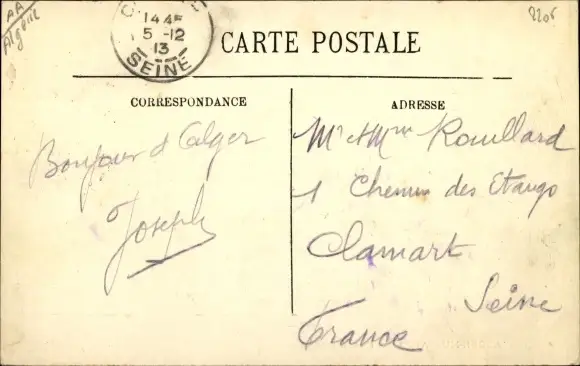 AA
Algérie
1445
5-12
13
SEINE
2206
CARTE POSTALE
CORRESPONDANCE
Bonjour d'Alger
Joseph
ADRESSE
Mr et Mme Rouillard
1 Chemin des Etangs
Clamart
Seine
France